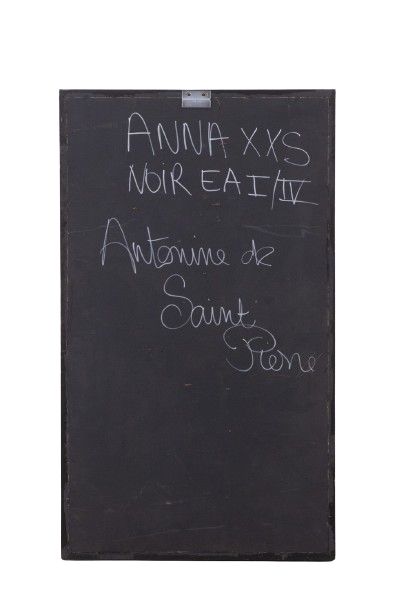 ANNA XXS
NOIR EA I/IV
Antonine de
Saint
Pierre